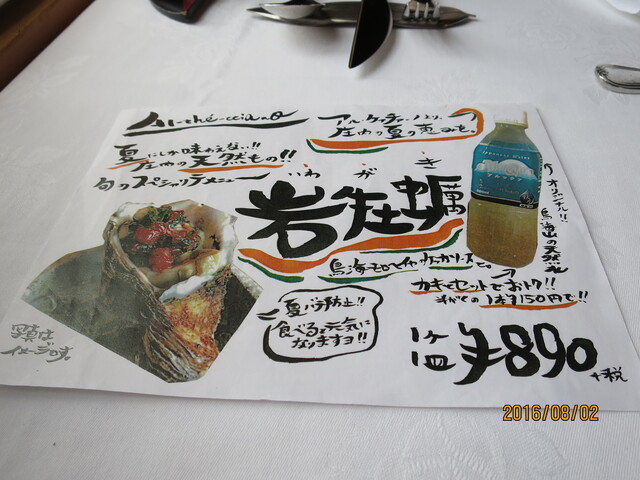 Al-ché-cciano
アル・ケッチァーノより、
庄内の夏の恵みを。
夏にしか味わえない!!
庄内の天然もの!!
旬のスペシャリテメニュー
いわがき
岩牡蠣
鳥海モロヘイヤ
オリジナル!!
鳥海山の天然水
カキとセットでおトク!!
1本¥150円で!!
夏バテ防止!!
食べると元気に
なりますヨ!!
1ヶ
皿
¥890
+税
2016/08/02